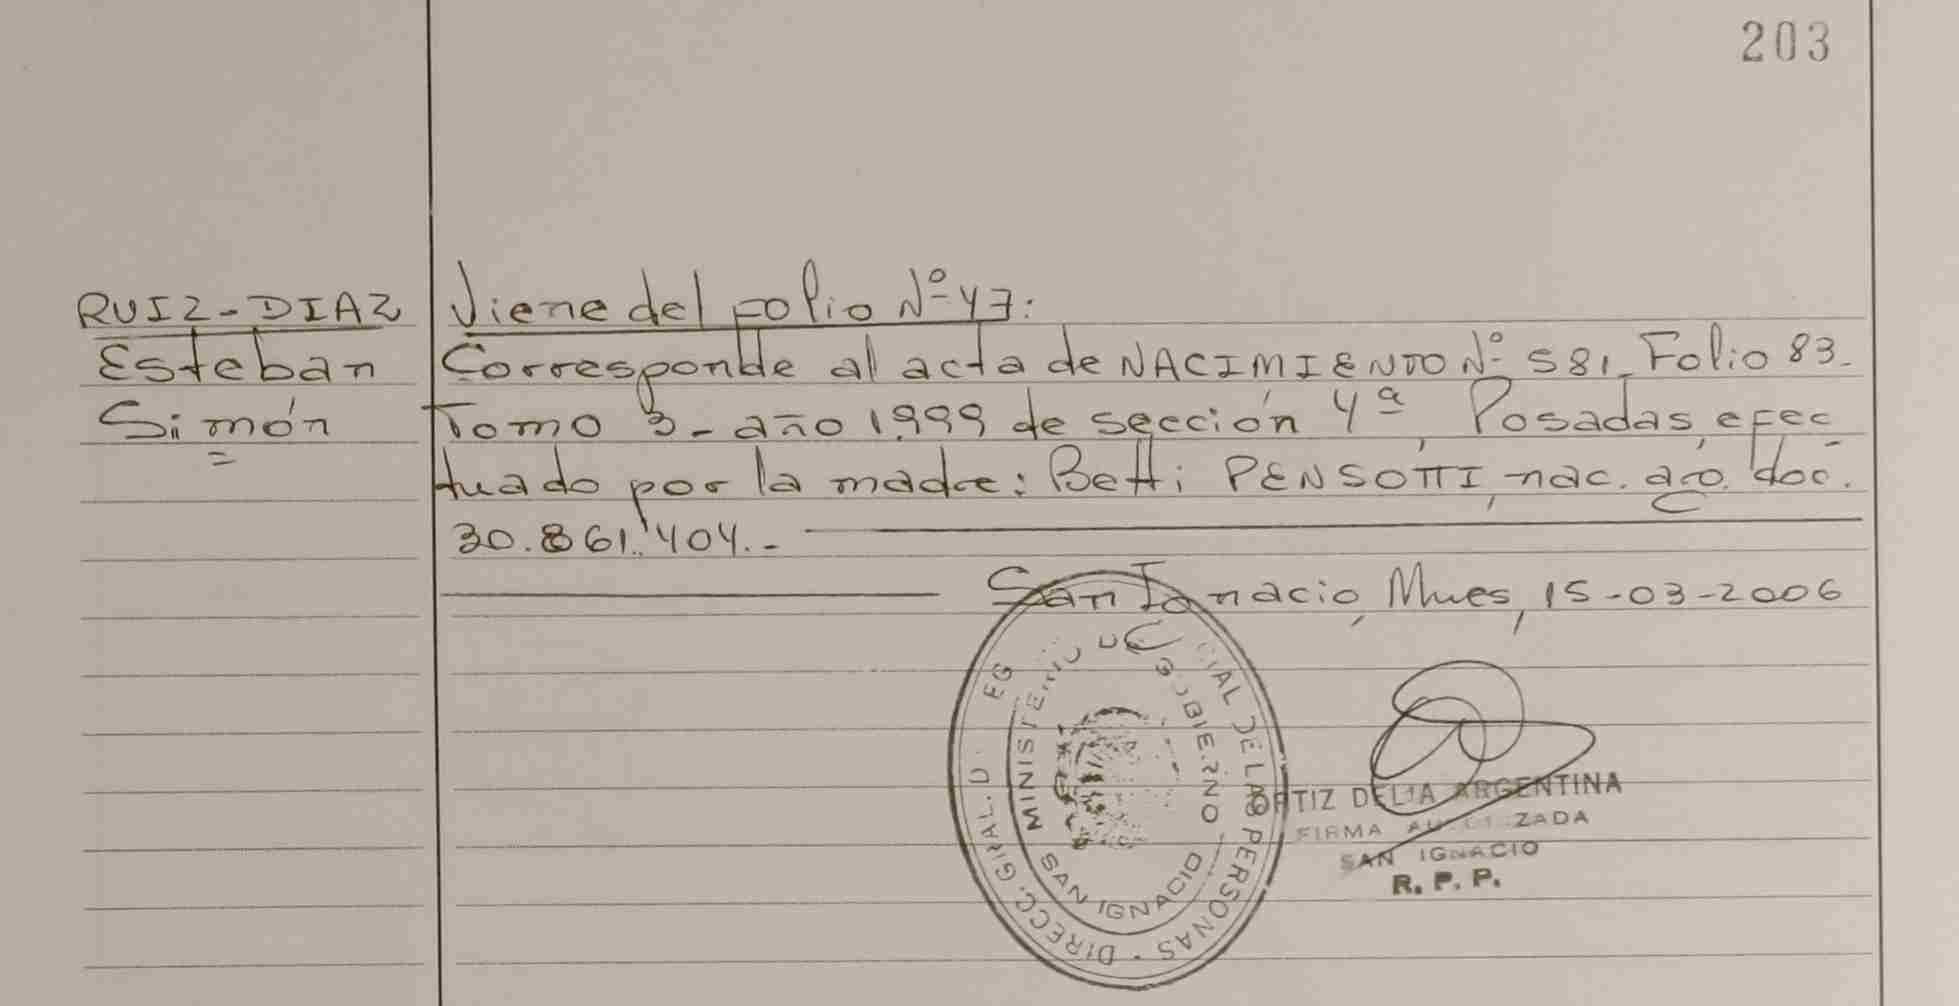 203
RUIZ-DIAZ
Esteban
Simón
=
Viene del folio Nº 47:
Corresponde al acta de NACIMIENTO Nº 581_ Folio 83_
Tomo 3_ año 1.999 de sección 4ª, Posadas, efec
tuado por la madre: Betti PENSOTTI, nac. arg. doc.
30.861.404.-
San Ignacio, Mnes, 15-03-2006
DIRECC. GRAL. D EG CIAL DE LAS PERSONAS
MINISTERIO DE GOBIERNO
SAN IGNACIO
ORTIZ DELIA ARGENTINA
FIRMA AUTORIZADA
SAN IGNACIO
R. P. P.